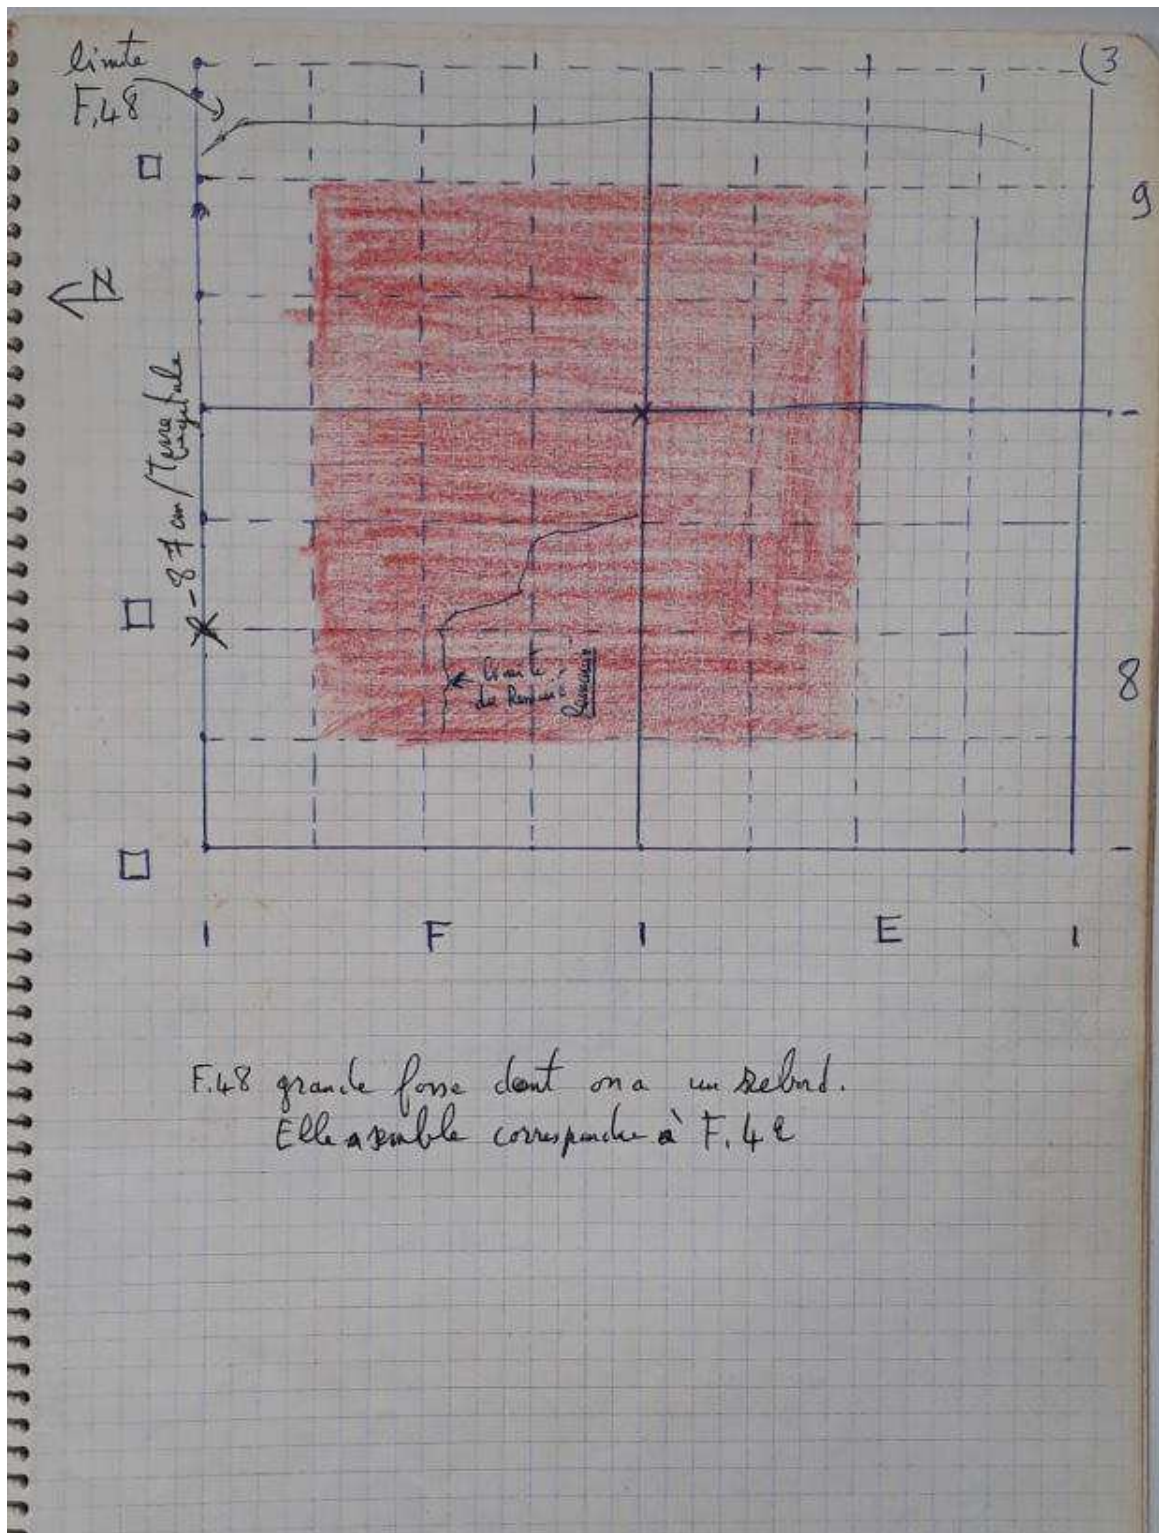 limite
F.48
(3
9
N
-87 cm/Terre
végétale
limite
du
8
F
E
F.48 grande fosse dont on a un rebord.
Elle semble correspondre à F.42